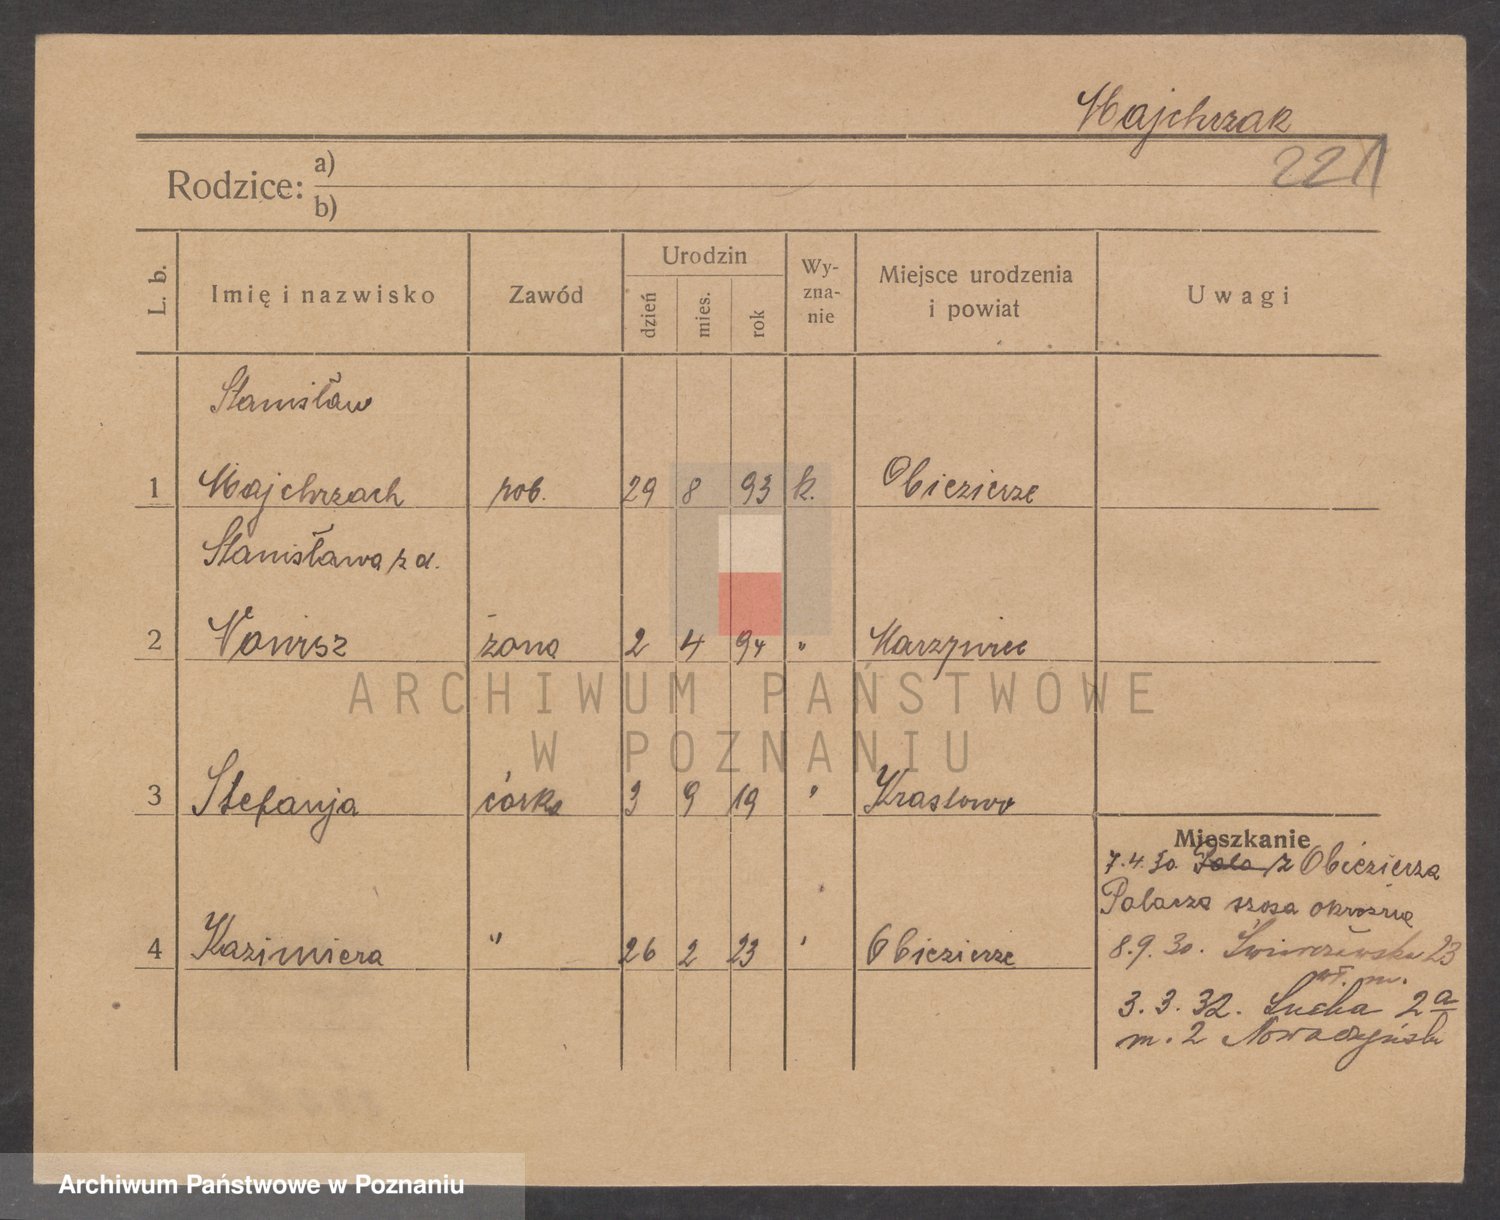 Majchrzak
221
Rodzice: a)
b)
L. b.
Imię i nazwisko
Zawód
Urodzin
dzień
mies.
rok
Wy-
zna-
nie
Miejsce urodzenia
i powiat
Uwagi
Stanisław
1 Majchrzach rob. 29 8 93 k. Obiezierze
Stanisława z d.
2 żona 2 4 94 "
ARCHIWUM PAŃSTWOWE
W POZNANIU
3 Stefanja córka 3 9 19 "
Mieszkanie
7.4.30. z Obiezierza
Palacza szosa okrężna
4 Kazimiera " 26 2 23 " Obiezierze
8.9.30. 23
wł. m.
3.3.32. Sucha 2a
m. 2
Archiwum Państwowe w Poznaniu